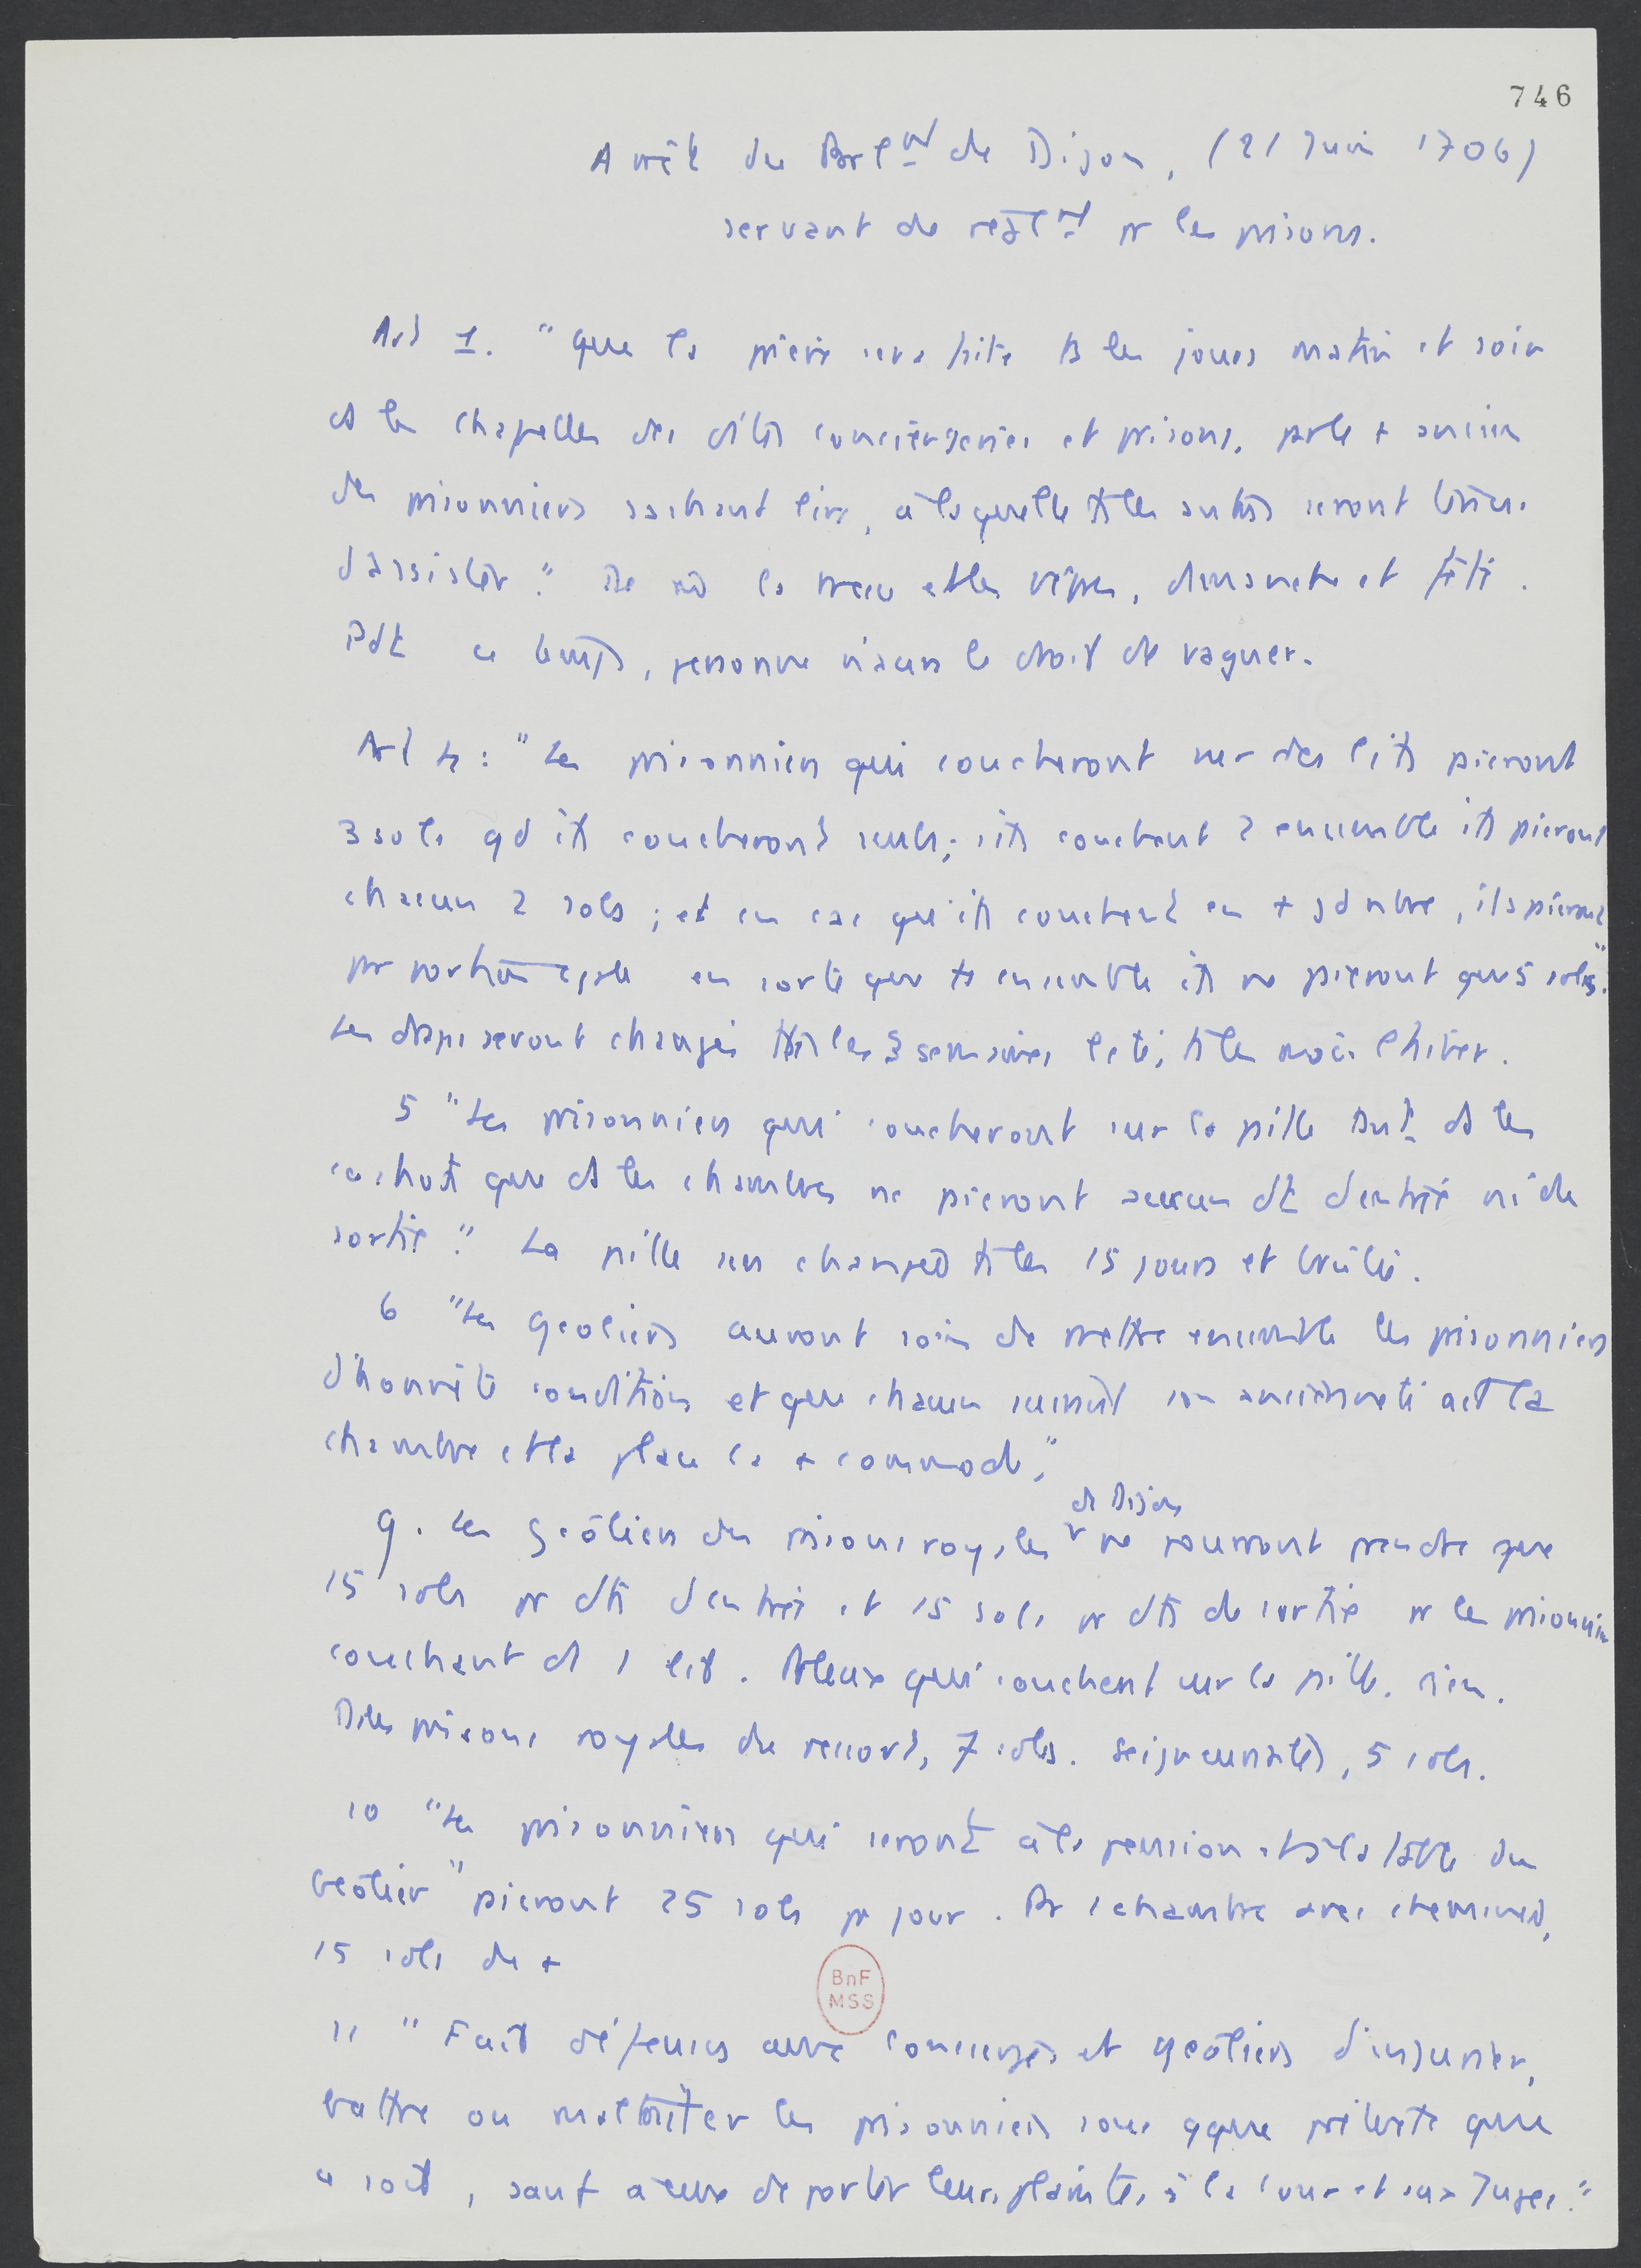 746
Arrêt du Parlnt de Dijon, (21 Juin 1706)
servant de reglnt pr les prisons.
Art 1. "que la prière sera faite ts les jours matin et soir
ds les chapelles des dites conciergeries et prisons, par le + ancien
des prisonniers sachant lire, à laquelle ts les autres seront tenus
d'assister." De m la messe et les vêpres, dimanche et fête.
Pdt ce temps, personne n'aura le droit de vaguer.
Art 4 : "Les prisonniers qui coucheront sur des lits paieront
3 sols qd ils coucheront seuls; s'ils couchent 2 ensemble ils paieront
chacun 2 sols ; et en cas qu'ils couchent en + gd nbre, ils paieront
par portion égale en sorte que ts ensemble ils ne paieront que 5 sols".
Les draps seront changés ttes les 3 semaines l'été; ts les mois l'hiver.
5 "Les prisonniers qui coucheront sur la paille tant ds les
cachots que ds les chambres ne paieront aucun dt d'entrée ni de
sortie." La paille sera changée ts les 15 jours et brûlée.
6 "Les geoliers auront soin de mettre ensemble les prisonniers
d'honnête condition et que chacun suivant son ancienneté ait la
chambre et la place la + commode."
de Dijon
9. Les geôliers des prisons royales v ne pourront prendre que
15 sols pr dts d'entrée et 15 sols pr dts de sortie pr les prisonniers
couchant ds 1 lit. Pr ceux qui couchent sur la paille, rien.
Ds les prisons royales du ressort, 7 sols. Seigneuriales, 5 sols.
10 "Les prisonniers qui seront à la pension et à la table du
Geôlier" paieront 25 sols pr jour. Pr 1 chambre avec cheminée,
15 sols de +
BnF
MSS
11 "Fait défenses aux concierges et geôliers d'injurier,
battre ou maltraiter les prisonniers sous qque prétexte que
ce soit, sauf à eux de porter leurs plaintes à la Cour et aux Juges."